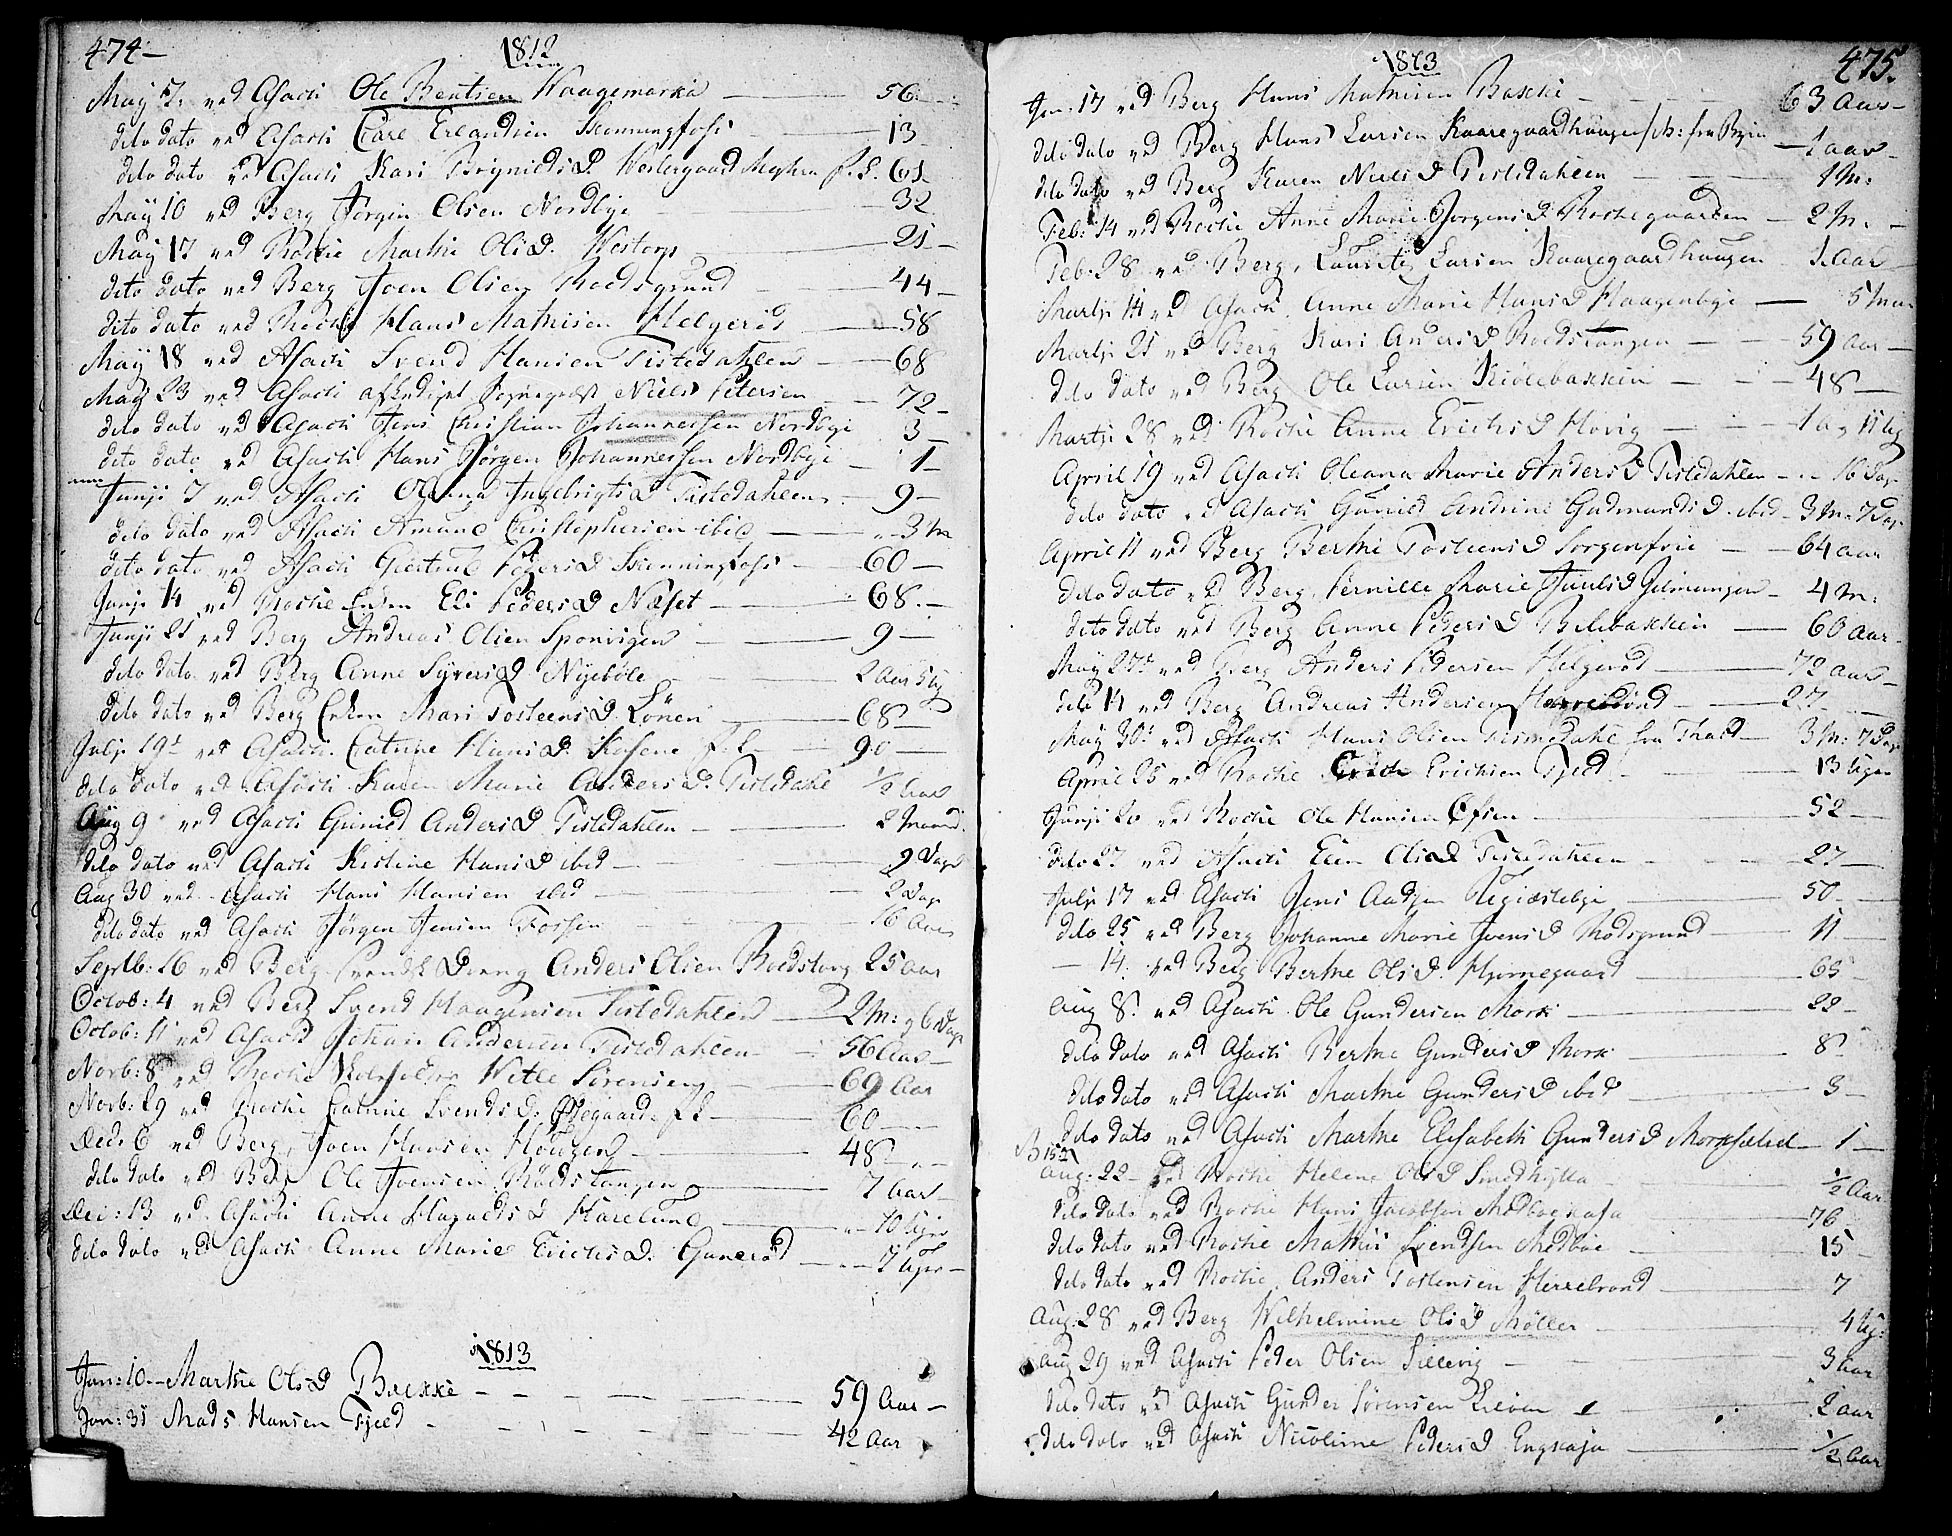 474
1812
May 7. ved Asach Ole Bentsen Haagemarka 56
dito dato ved Asach Erlandsen Skonningfoss 13
dito dato ved Asach Kari BrynildsD. Westergaard F.S. 61
May 10 ved Berg Jørgen Olsen Nordbye 32
May 17 ved Rocke Marthe OlsD. Westorp 21
dito dato ved Berg Joen Olsen Rødsgrund 44
dito dato ved Rocke Hans Mathisen Helgerød 58
May 18 ved Asach Svend Hansen Tistedahlen 68
May 23 ved Asach afskediget Sognepræst Niels Petersen 72
dito dato ved Asach Jens Christian Johannessen Nordbye 3
dito dato ved Asach Hans Jørgen Johannessen Nordbye 1
Junji 7 ved Asach IngebrigtsD Tistedahlen 9
dito dato ved Asach Amund Christophersen ibid 3 M
dito dato ved Asach Giertrud PedersD Skonningfoss 60
Junji 14 ved Rocke Enken Eli PedersD Næset 68
Junji 21 ved Berg Andreas Olsen Sponvigen 9
dito dato ved Berg Anne SyversD Nyebøle 2 Aar 5 Ug
dito dato ved Berg Enken Mari TosteensD. Lønen 68
Julji 19 ved Asach Catrine HansD. Kasene F.L. 90
dito dato ved Asach Karen Marie AndersD. Tistedahl 1/2 Aar
Aug 9 ved Asach Gunild AndersD Tistedahlen 2 Maand.
dito dato ved Asach Kirstine HansD ibid 9 Dage
Aug 30 ved Asach Hans Hansen ibid 2 Dag
dito dato ved Asach Jørgen Jensen Fossen 16 Aar
Septb: 16 ved Berg Dreng Anders Olsen Rødstang 25 Aar
Octob: 4 ved Berg Svend Haagensen Tistedahlen 2 M: 6 Dage
Octob: 11 ved Asach Johan Andersen Tistedahlen 56 Aar
Novb: 8 ved Rocke Wetle Sørensen 69 Aar
Novb: 29 ved Rocke Catrine SvendsD. Ødegaard F.L. 60
Decb 6 ved Berg Joen Hansen Hougen 48
dito dato ved Berg Ole Joensen Rødstangen 7 Aar
Dec: 13 ved Asach Anne HagaldsD Harelund 10 Uger
dito dato ved Asach Anne Marie ErichsD. Gunerød 7 Uger
1813
Jan: 10 Marthe OlsD Backke 59 Aar
Jan: 31 Mads Hansen Fjeld 42 Aar
1813
475
Jan: 17 ved Berg Hans Mathisen Bakke 63 Aar
dito dato ved Berg Hans Larsen Kaaregaardhaugen 1 aar
dito dato ved Berg Karen NielsD Tistedahlen 1 M:
Feb: 14 ved Rocke Anne Marie JørgensD Rockegaarden 2 M.
Feb: 28 ved Berg Lauritz Larsen Kaaregaardhaugen 1 Aar
Martji 14 ved Asach Anne Marie HansD Haagenbye 5 M
Martji 21 ved Berg Kari AndersD Rødstangen 59 Aar
dito dato ved Berg Ole Larsen Kiølebakken 48
Martji 28 ved Rocke Anne ErichsD Hovig 1 a 11 Ug
April 19 ved Asach Oleana Marie AndersD Tistedahlen 16 Dage
dito dato ved Asach Gunild Andrine GudmundsD ibid 3 M: 7 Dage
April 11 ved Berg Berthe TosteensD Sorgenfrie 64 aar
dito dato ved Berg Pernille Marie 4 M:
dito dato ved Berg Anne PedersD 60 Aar
May 27 ved Berg Anders Pedersen Helgerød 72 aar
dito 14 ved Berg Andreas Andersen Herrebrønd 27
May 30 ved Asach Hans Olsen Tistedahl 3 M: 7 Dage
April 25 ved Rocke Erich Erichsen Fjeld 13 Uger
Junji 20 ved Rocke Ole Hansen 52
dito 27 ved Asach Elen OlsD Tistedahlen 27
Julji 17 ved Asach Jens 50
dito 25 ved Berg Johanne Marie JoensD Rødsgrund 11
14. ved Berg Berthe OlsD. Hjørnegaard 65
Aug 8. ved Asach Ole Gundersen Mork 22
dito dato ved Asach Berthe GundersD Mork 8
dito dato ved Asach Marthe GundersD ibid 3
dito dato ved Asach Marthe Elisabeth GundersD 1
Aug: 22 ved Rocke Helene OlsD Smedhytta 1/2 Aar
dito dato ved Rocke Hans Jacobsen 76
dito dato ved Rocke Mathis Svendsen Medbøe 15
dito dato ved Rocke Anders Tostensen Herrebrønd 7
Aug: 28 ved Berg Wilhelmine OlsD Møller 4 Ug:
Aug 29 ved Asach Peder Olsen Sillevig 3 Aar
dito dato ved Asach Gunder Sørensen 2 aar
dito dato ved Asach Nicoline PedersD Engskaja 1/2 Aar